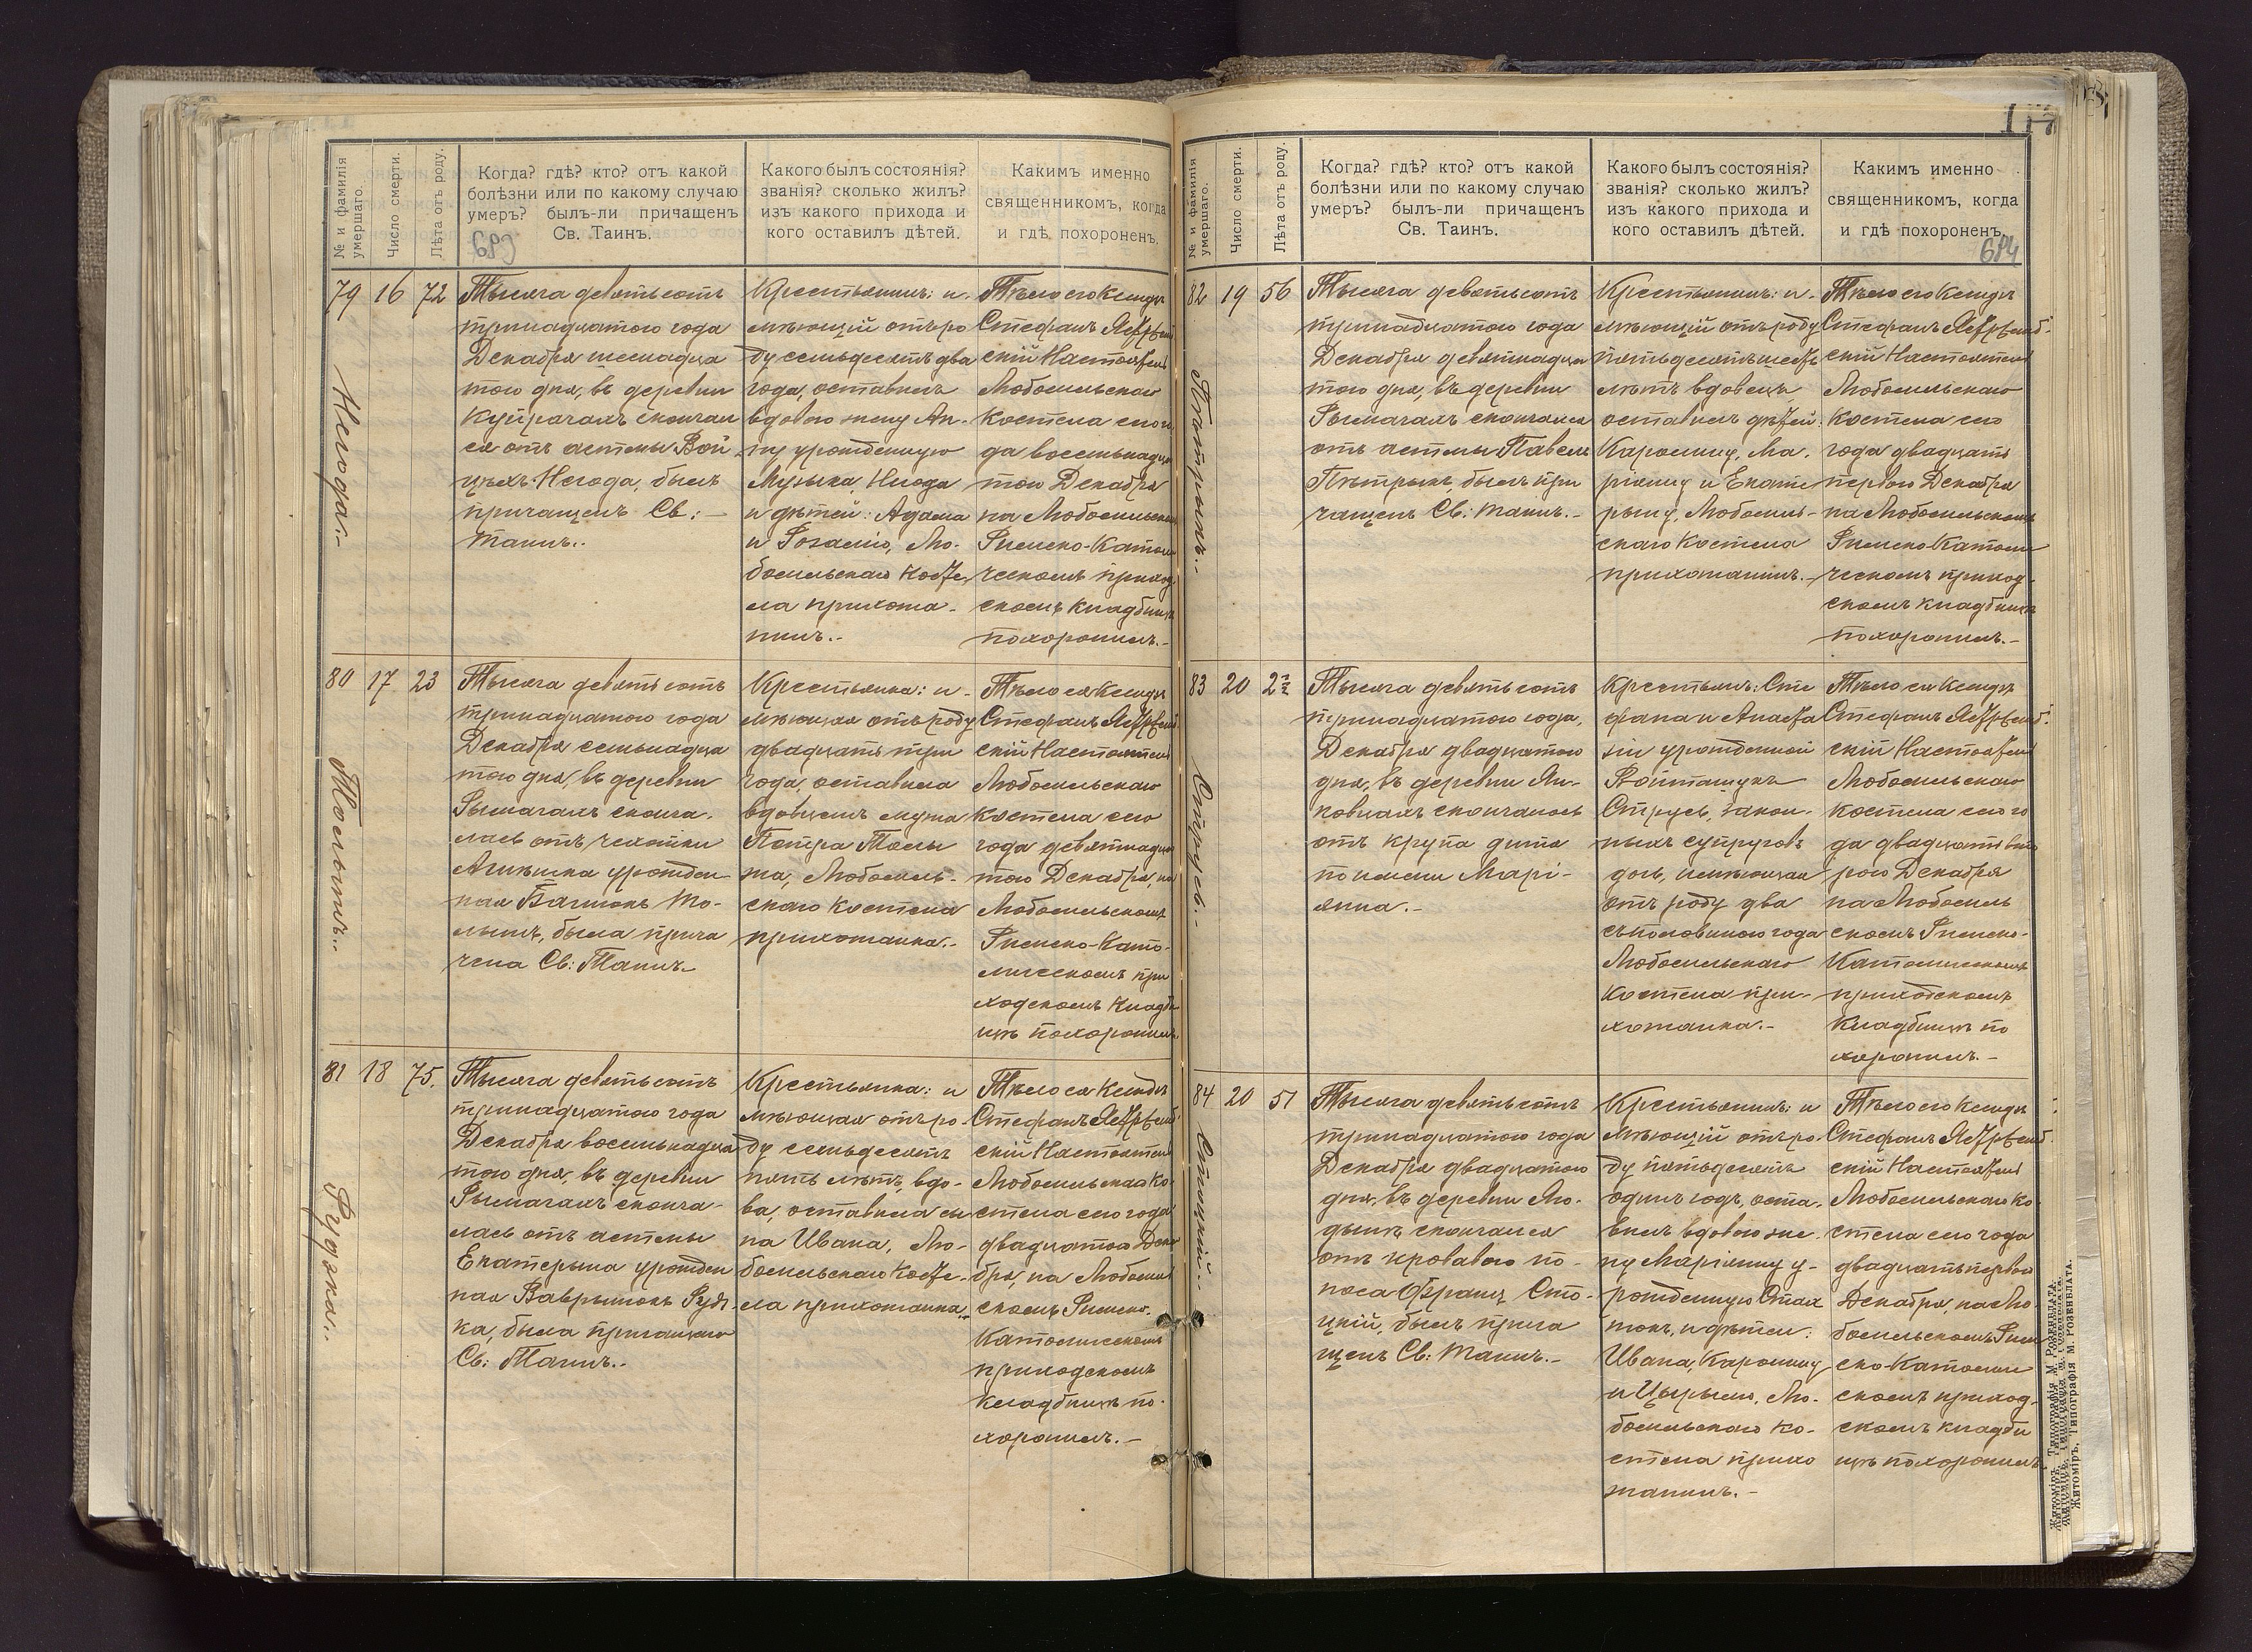 № и фамилія умершаго.
Число смерти.
Лѣта отъ роду.
Когда? гдѣ? кто? отъ какой
болѣзни или по какому случаю
умеръ? былъ-ли причащенъ
Св. Таинъ.
Какого былъ состоянія?
званія? сколько жилъ?
изъ какого прихода и
кого оставилъ дѣтей.
Какимъ именно
священникомъ, когда
и гдѣ похороненъ.
79 16 72
Негода.-
Тысяча девятьсотъ
тринадцатого года
Декабря шеснадца
того дня, въ деревни
Купрачахъ скончал
ся отъ астмы Вой
цѣхъ Негода, былъ
причащенъ Св:
таинъ.-
Крестьянинъ: и-
мѣющій отъ ро
ду семьдесятъ два
года, оставилъ
вдовою жену Ан-
ну урожденную
Музыка, Негода
и дѣтей: Адама
и Розалію, Лю-
бомльскаго Косте
ла прихожа-
нинъ.-
Тѣло его Ксендзъ
Стефанъ
скій Настоятель
Любомльскаго
Костела сего го
да восемьнадца
того Декабря
на Любомльскомъ
Римско-Катол
ческомъ приход
скомъ кладбищѣ
похоронилъ.-
80 17 23
Тысяча девятьсотъ
тринадцатого года
Декабря семьнадца
того дня, въ деревни
Рымачахъ сконча-
лась отъ чехотки
Агнѣшка урожден-
ная То-
, была прича
чена Св: Таинъ.-
Крестьянка: и-
мѣющая отъ роду
двадцать три
года, оставила
вдовцемъ мужа
Петра
, Любомль-
скаго Костела
прихожанка.-
Тѣло ея Ксендзъ
Стефанъ
скій Настоятель
Любомльскаго
Костела сего
года девятнадца
того Декабря, на
Любомльскомъ
Римско-Като-
лическомъ при
ходскомъ кладби
щѣ похоронилъ
81 18 75.
Рудзка.-
Тысяча девятьсотъ
тринадцатого года
Декабря восемьнадца
того дня, въ деревни
Рымачахъ сконча-
лась отъ астмы
Екатерына урожден
ная Рудз-
ка, была причащена
Св: Таинъ.-
Крестьянка: и
мѣющая отъ ро-
ду семьдесятъ
пять лѣтъ, вдо-
ва, оставила сы
на Ивана, Лю-
бомльскаго Косте-
ла прихожанка.-
Тѣло ея Ксендзъ
Стефанъ
скій Настоятель
Любомльскаго Ко-
стела сего года
двадцатого Дека
бря, на Любомль
скомъ Римско-
Католическомъ
приходскомъ
кладбищѣ по-
хоронилъ.-
117
684
№ и фамилія умершаго.
Число смерти.
Лѣта отъ роду.
Когда? гдѣ? кто? отъ какой
болѣзни или по какому случаю
умеръ? былъ-ли причащенъ
Св. Таинъ.
Какого былъ состоянія?
званія? сколько жилъ?
изъ какого прихода и
кого оставилъ дѣтей.
Какимъ именно
священникомъ, когда
и гдѣ похороненъ.
82 19 56
Тысяча девятьсотъ
тринадцатого года
Декабря девятнадца
того дня, въ деревни
Рымачахъ скончался
отъ астмы Павелъ
Пѣтрыкъ, былъ при
чащенъ Св: таинъ.-
Крестьянинъ: и-
мѣющій отъ роду
пятьдесятъ шесть
лѣтъ вдовецъ
оставилъ дѣтей:
Каролину, Ма-
ріянну и Екате
рыну, Любомль-
скаго Костела
прихожанинъ.-
Тѣло его Ксендзъ
Стефанъ
скій Настоятель
Любомльскаго
Костела сего
года двадцать
первого Декабря
на Любомльскомъ
Римско-Католи
ческомъ приход-
скомъ кладбищѣ
похоронилъ.-
83 20 2½
Струсь.-
Тысяча девятьсотъ
тринадцатого года,
Декабря двадцатого
дня, въ деревни Ян-
ковцахъ скончалось
отъ крупа дитя
по имени Марі-
янна.-
Крестьянъ: Сте
фана и Анаста
зіи урожденной
Войташукъ
Струсь, закон-
ныхъ супруговъ
дочь, имѣющая
отъ роду два
съ половиною года
Любомльскаго
Костела при-
хожанка.-
Тѣло ея Ксендзъ
Стефанъ
скій Настоятель
Любомльскаго
Костела сего го
да двадцать вто
рого Декабря
на Любомль
скомъ Римско-
Католическомъ
приходскомъ
Кладбищѣ по
хоронилъ.-
84 20 51
Стоцкій.-
Тысяча девятьсотъ
тринадцатого года
Декабря двадцатого
дня, въ деревни Лю-
скончался
отъ кроваваго по-
носа Францъ Сто-
цкій, былъ прича
щенъ Св: таинъ.-
Крестьянинъ: и
мѣющій отъ ро-
ду пятьдесятъ
одинъ годъ, оста-
вилъ вдовою же-
ну Маріянну у-
рожденную
, и дѣтей:
Ивана, Каролину
и , Лю-
бомльскаго Ко-
стела прихо
жанинъ.-
Тѣло его Ксендзъ
Стефанъ
скій Настоятель
Любомльскаго Ко-
стела сего года
двадцать первого
Декабря, на Лю-
бомльскомъ Рим
ско-Католи
скомъ приход-
скомъ кладби
щѣ похоронилъ
Житоміръ, Типографія М. Розенблата.